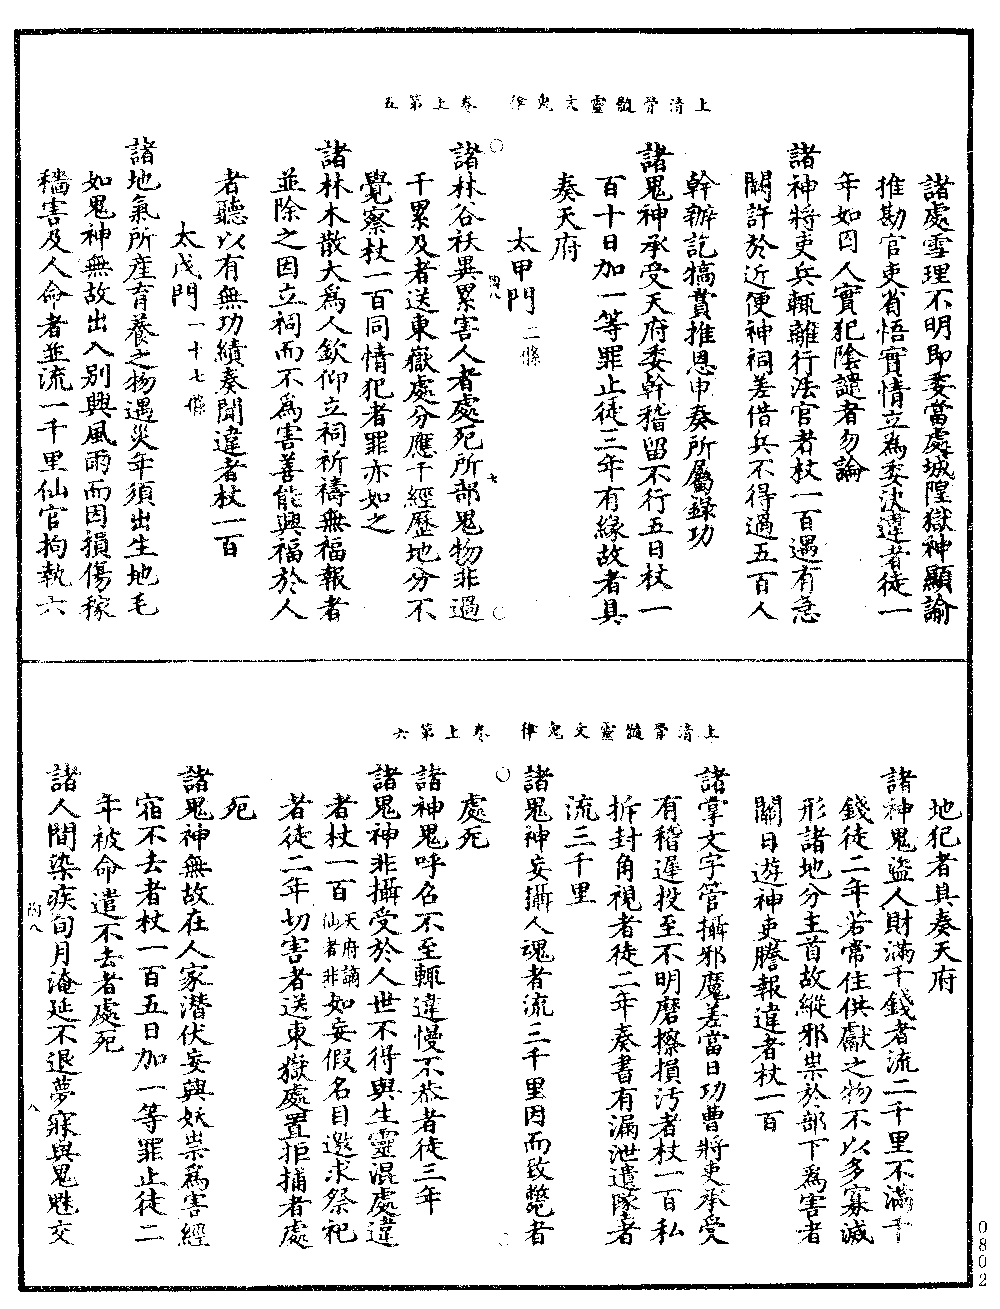 上清骨髓靈文鬼律　卷上第五
諸處雪理不明即委當處城隍獄神顯諭
推勘官吏省悟實情立為委決違者徒一
年如囚人實犯陰譴者勿論
諸神將吏兵輒離行法官者杖一百遇有急
關許於近便神祠差借兵不得過五百人
幹辦訖犒賞推恩申奏所屬錄功
諸鬼神承受天府委幹稽留不行五日杖一
百十日加一等罪止徒三年有緣故者具
奏天府
太甲門二條
諸林谷袄異累害人者處死所部鬼物非過
干累及者送東嶽處分應干經歷地分不
覺察杖一百同情犯者罪亦如之
諸林木散大為人欽仰立祠祈禱無福報者
並除之因立祠而不為害善能興福於人
者聽以有無功績奏聞違者杖一百
太戊門一十七條
諸地氣所産育養之物遇災年須出生地毛
如鬼神無故出入別興風雨而因損傷稼
穡害及人命者並流一千里仙官拘執六
上清骨髓靈文鬼律　卷上第六
地犯者具奏天府
諸神鬼盜人財滿千錢者流二千里不滿千
錢徒二年若常住供獻之物不以多寡減
形諸地分主首故縱邪祟於部下為害者
關日遊神吏謄報違者杖一百
諸掌文字管攝邪魔差當日功曹將吏承受
有稽遲投至不明磨擦損汚者杖一百私
拆封角視者徒二年奏書有漏泄遺隊者
流三千里
諸鬼神妄攝人魂者流三千里因而致斃者
處死
諸神鬼呼召不至輒違慢不恭者徒三年
諸鬼神非攝受於人世不得與生靈混處違
者杖一百天府謫仙者非如妄假名目邀求祭祀
者徒二年切害者送東嶽處置拒捕者處
死
諸鬼神無故在人家潛伏妄興妖祟為害經
宿不去者杖一百五日加一等罪止徒二
年被命遣不去者處死
諸人間染疾旬月淹延不退夢寐與鬼魅交
0802